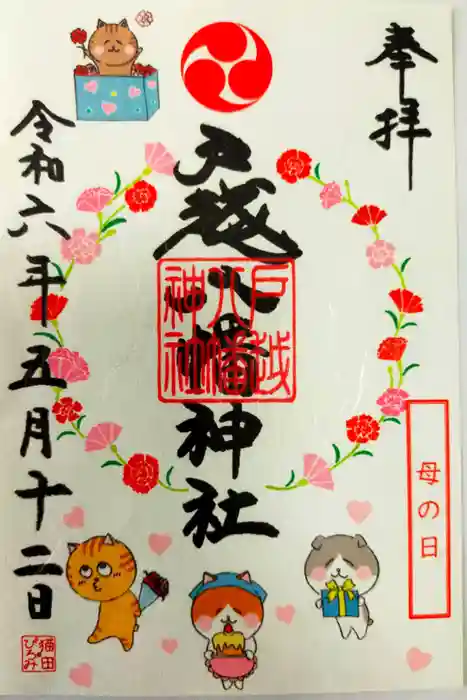 奉拝
戸越八幡神社
戸越
八幡
神社
令和六年五月十二日
母の日
猫田
ぴろみ